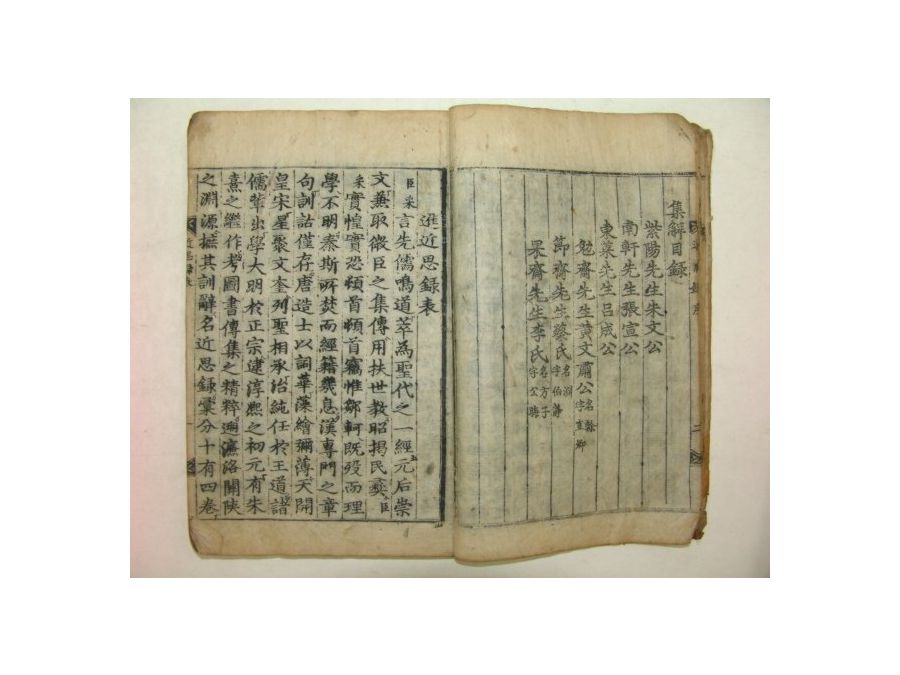 集解目錄
紫陽先生朱文公
南軒先生張宣公
東萊先生呂成公
勉齋先生黃文肅公名榦字直卿
節齋先生蔡氏名淵字伯靜
果齋先生李氏名方子字公晦
進近思錄表
臣采言先儒鳴道萃為聖代之一經元后崇
文兼取微臣之集傳用扶世敎昭揭民彛臣
采實惶實恐頓首頓首竊惟鄒軻旣歿而理
學不明秦斯所焚而經籍幾息漢專門之章
句訓詁僅存唐造士以詞華藻繪彌薄天開
皇宋星聚文奎列聖相承治純任於王道諸
儒輩出學大明於正宗逮淳熙之初元有朱
熹之繼作考圖書傳集之精粹遡濂洛關陝
之淵源摭其訓辭名近思錄彙分十有四卷